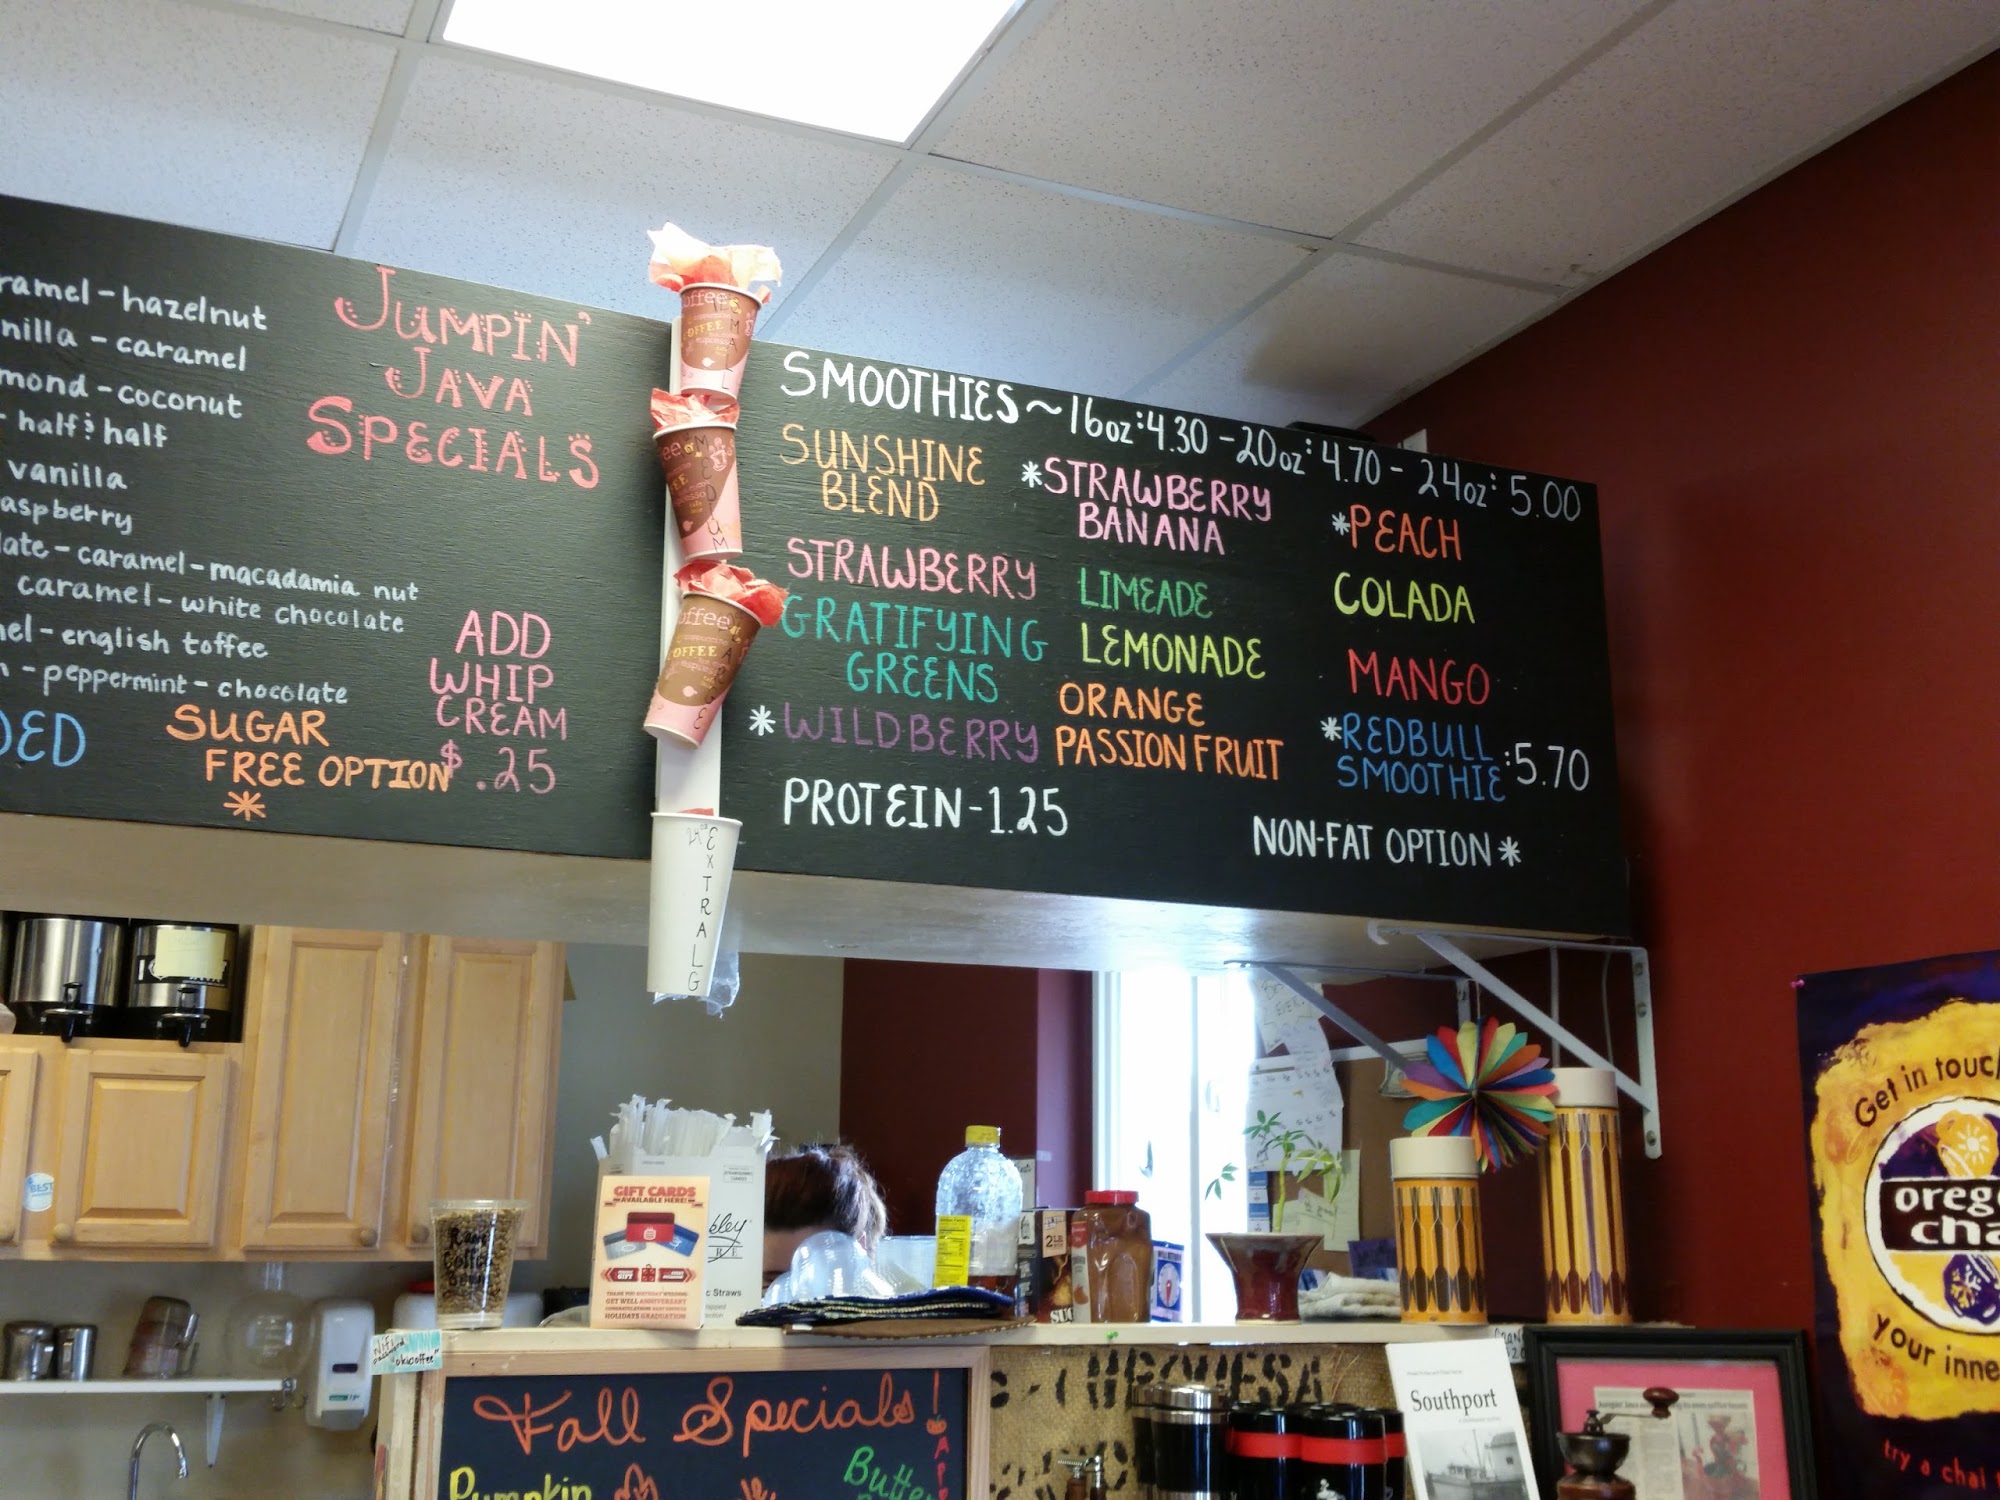 hazelnut
caramel
coconut
half & half
vanilla
caramel - macadamia nut
caramel - white chocolate
english toffee
peppermint - chocolate
SUGAR
FREE OPTION
*
JUMPIN'
JAVA
SPECIALS
ADD
WHIP
CREAM
$.25
SMALL
COFFEE
MEDIUM
COFFEE
LARGE
24oz
EXTRA LG
SMOOTHIES ~ 16oz: 4.30 - 20oz: 4.70 - 24oz: 5.00
SUNSHINE
BLEND
STRAWBERRY
GRATIFYING
GREENS
*WILDBERRY
PROTEIN - 1.25
*STRAWBERRY
BANANA
LIMEADE
LEMONADE
ORANGE
PASSION FRUIT
*PEACH
COLADA
MANGO
*REDBULL
SMOOTHIE :5.70
NON-FAT OPTION *
GIFT CARDS
AVAILABLE HERE!
GET WELL ANNIVERSARY
HOLIDAYS GRADUATION
Straws
2LB
"okicoffee"
Fall Specials!
Pumpkin
Southport
Get in touch
your inne
try a chai